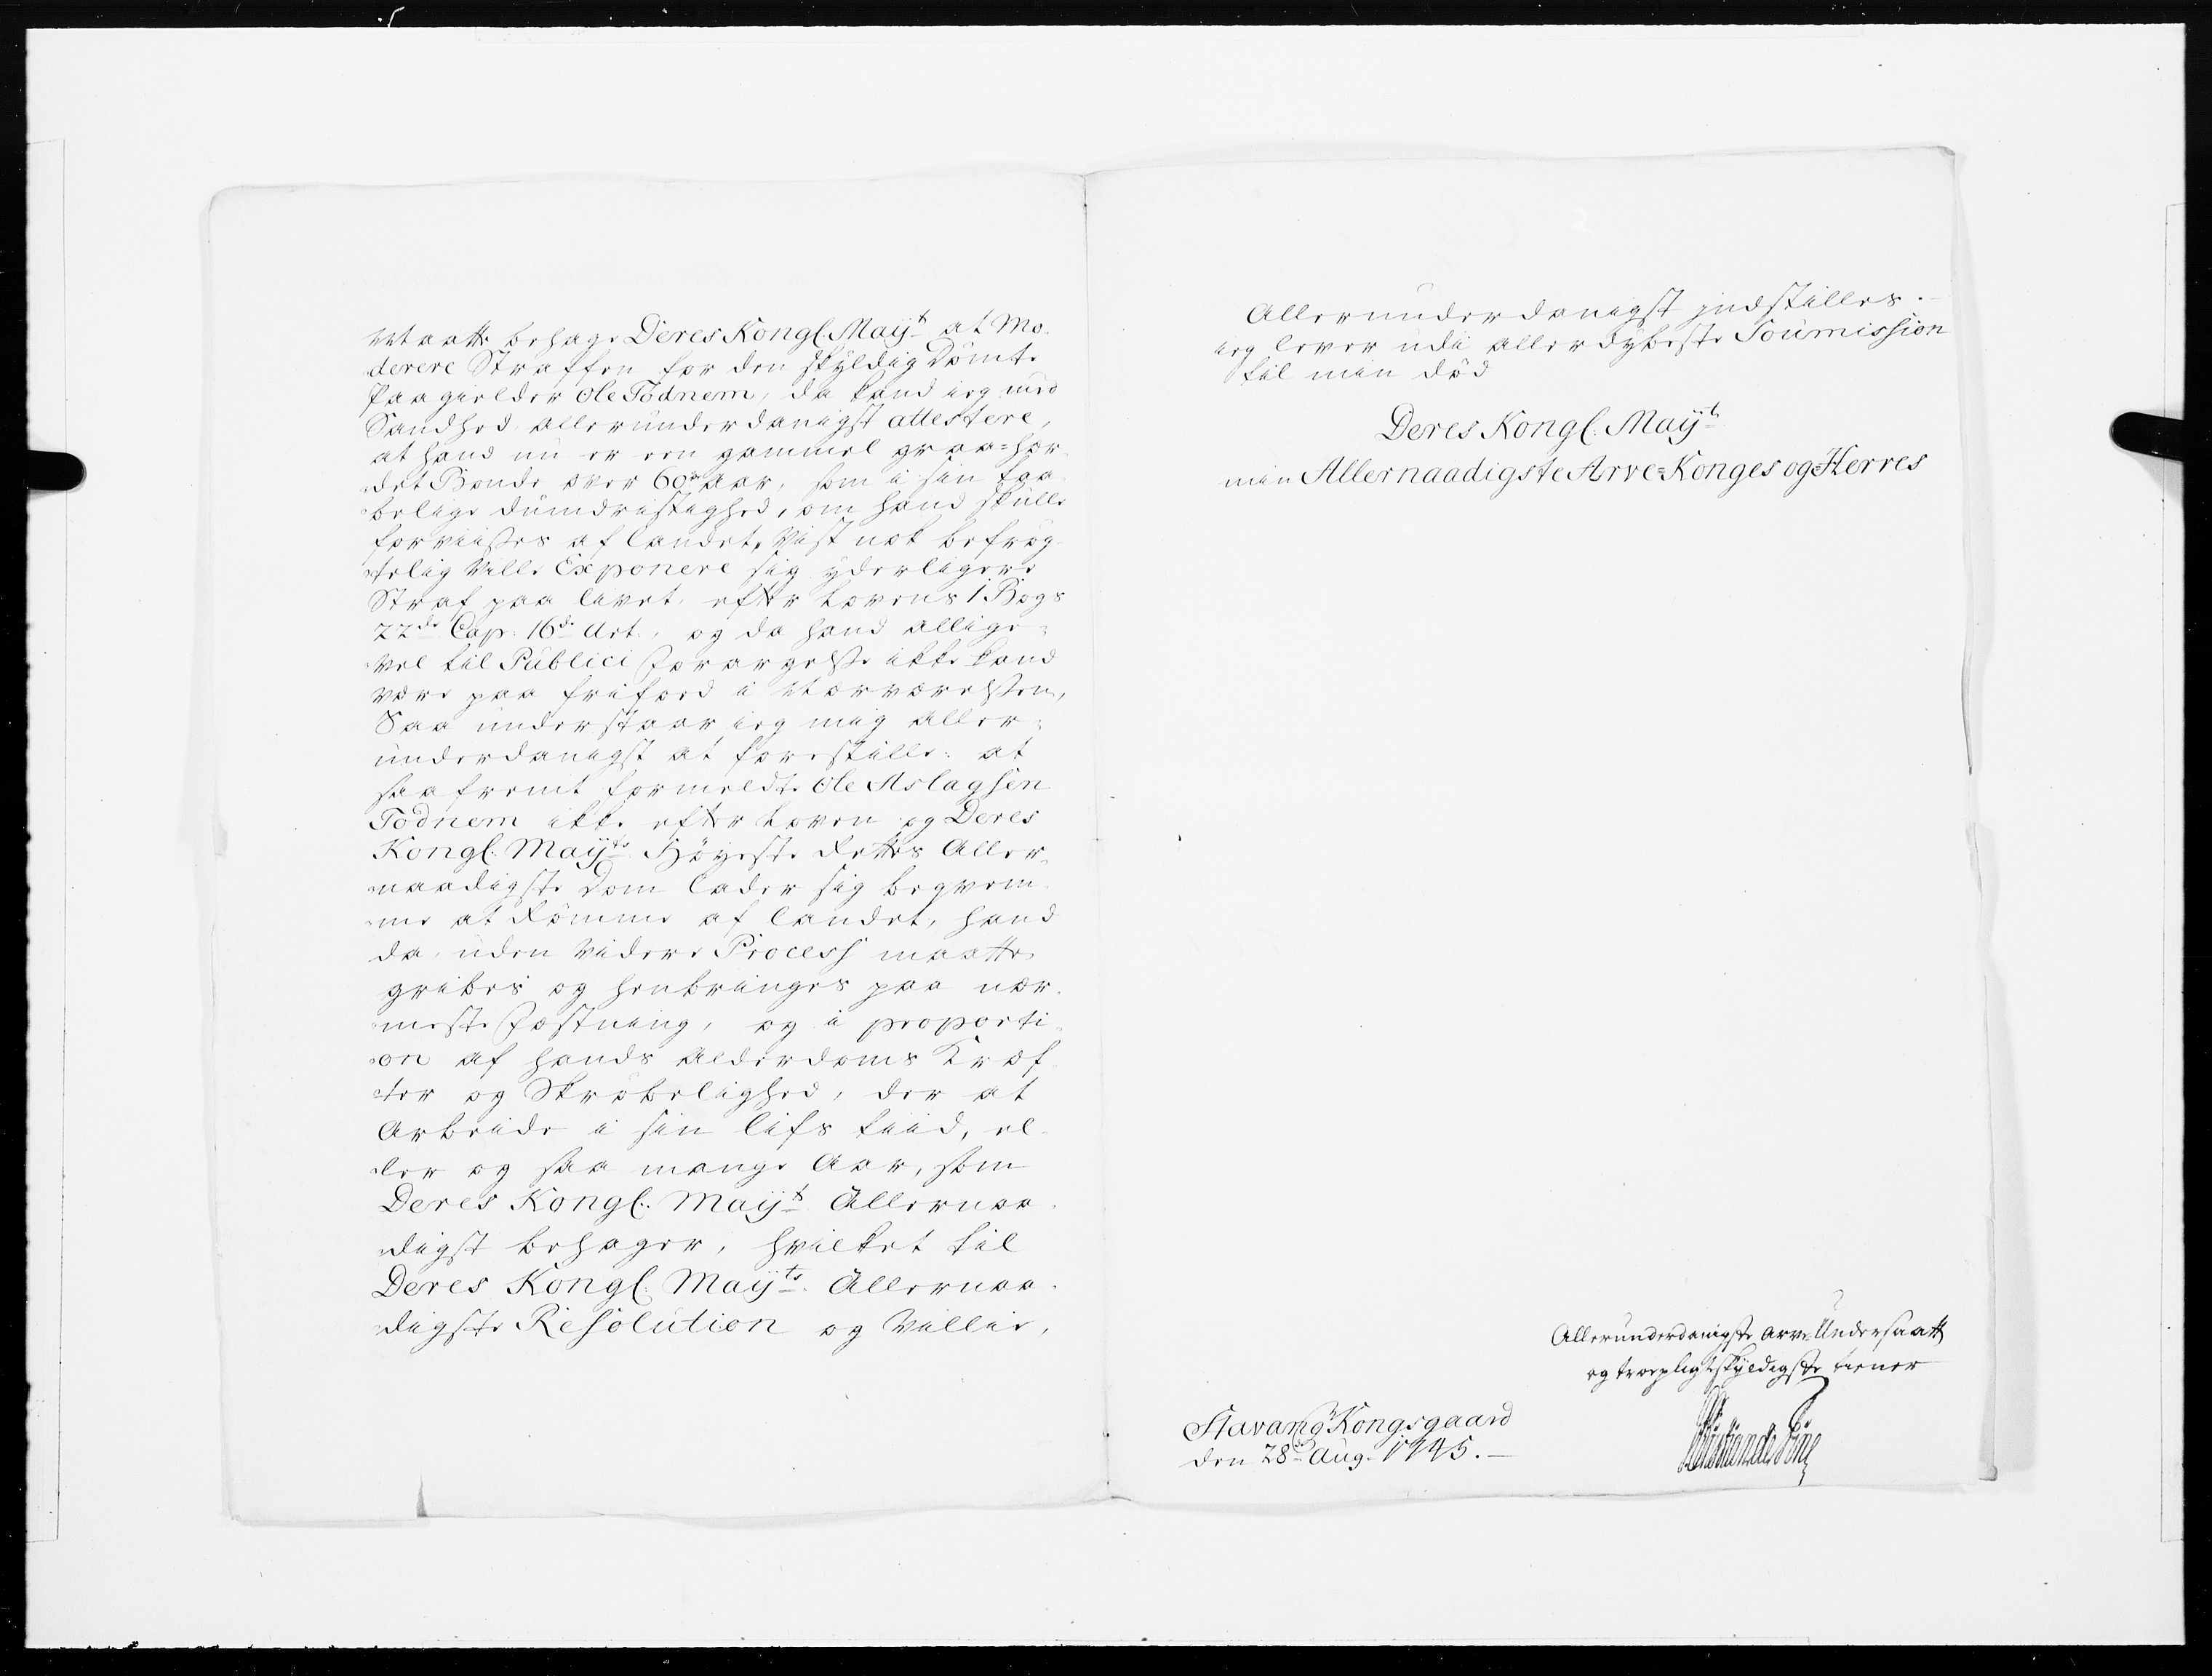 Maatte behage Deres Kongl. Mayt at Mo-
derere Straffen for den skÿldig Dömte
Paagielder Ole Todnem, da kand ieg med
Sandhed allerunderdanigst attestere,
at hand nu er een gammel graa=hær-
det Bonde over 60de Aar, som i sin taa-
belige dumdristighed, om hand skulle
forviises af landet, vist nok befryg-
telig ville Exponere sig ÿderligere
Straf paa livet, efter Lovens 1 Bogs
22de Cap: 16de Art., og da hand allige-
vel til Publici Forargelse ikke kand
være paa frifoed i Nærværelsen,
Saa understaar ieg mig aller-
underdanigst at forestille: at
saafremt formeldte Ole Aslagsen
Todnem ikke efter Loven og Deres
Kongl. Mayts Höyeste Rettes Aller-
naadigste Dom lader sig beqvem-
me at Römme af landet, hand
da, uden videre Process maatte
gribes og henbringes paa nær-
meste Fæstning, og i proporti-
on af hands Alderdoms Kræf-
ter og Skröbelighed, der at
Arbeide i sin lifs tiid, el-
ler og saa mange Aar, som
Deres Kongl. Mayt Allernaa-
digst behager, hvilket til
Deres Kongl. Mayts Allernaa-
digste Resolution og Villie,
Allerunderdanigst indstilles.
ieg lever udi allerdÿbeste Soumission
til min död
Deres Kongl. Mayts
min Allernaadigste Arve=Konges og Herres
Allerunderdanigste arve Undersaatt
og troepligtskÿldigste tiener
Stavang Kongsgaard
den 28de Aug. 1745.